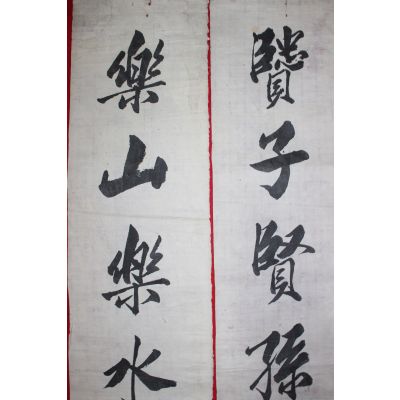 贒子賢孫
樂山樂水